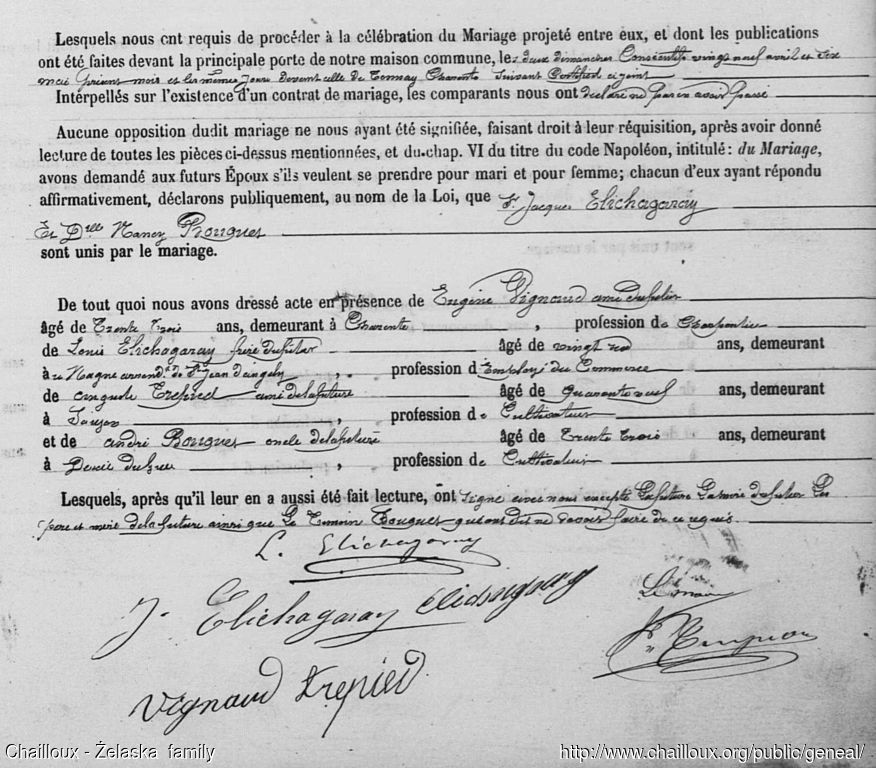 Lesquels nous ont requis de procéder à la célébration du Mariage projeté entre eux, et dont les publications
ont été faites devant la principale porte de notre maison commune, les deux dimanches Consécutifs vingt neuf avril et Six
mai présent mois et les mêmes Jours devant celle de Tonnay Charente suivant Certificat ci joint
Interpellés sur l'existence d'un contrat de mariage, les comparants nous ont déclaré ne pas en avoir passé
Aucune opposition dudit mariage ne nous ayant été signifiée, faisant droit à leur réquisition, après avoir donné
lecture de toutes les pièces ci-dessus mentionnées, et du chap. VI du titre du code Napoléon, intitulé: du Mariage,
avons demandé aux futurs Époux s'ils veulent se prendre pour mari et pour femme; chacun d'eux ayant répondu
affirmativement, déclarons publiquement, au nom de la Loi, que Jacques Elichagaray
Et Dlle Nancy
sont unis par le mariage.
De tout quoi nous avons dressé acte en présence de Eugène Vignaud ami du futur
âgé de Trente Trois ans, demeurant à Charente, profession de Charpentier
de Louis Elichagaray frère du futur âgé de vingt ans, demeurant
à de St Jean d'angely, profession d'Employé du Commerce
de ami de la future âgé de quarante neuf ans, demeurant
à, profession de Cultivateur
et de andré Bouques oncle de la future âgé de Trente Trois ans, demeurant
à, profession de Cultivateur
Lesquels, après qu'il leur en a aussi été fait lecture, ont signé avec nous excepté La future La mère du futur Les
père et mère de la future ainsi que Le Témoin Bouques qui ont dit ne savoir faire de ce requis.
L. Elichagaray
J. Elichagaray Elichagaray
Le maire
Vignaud Trepied
Chailloux - Želaska family
http://www.chailloux.org/public/geneal/